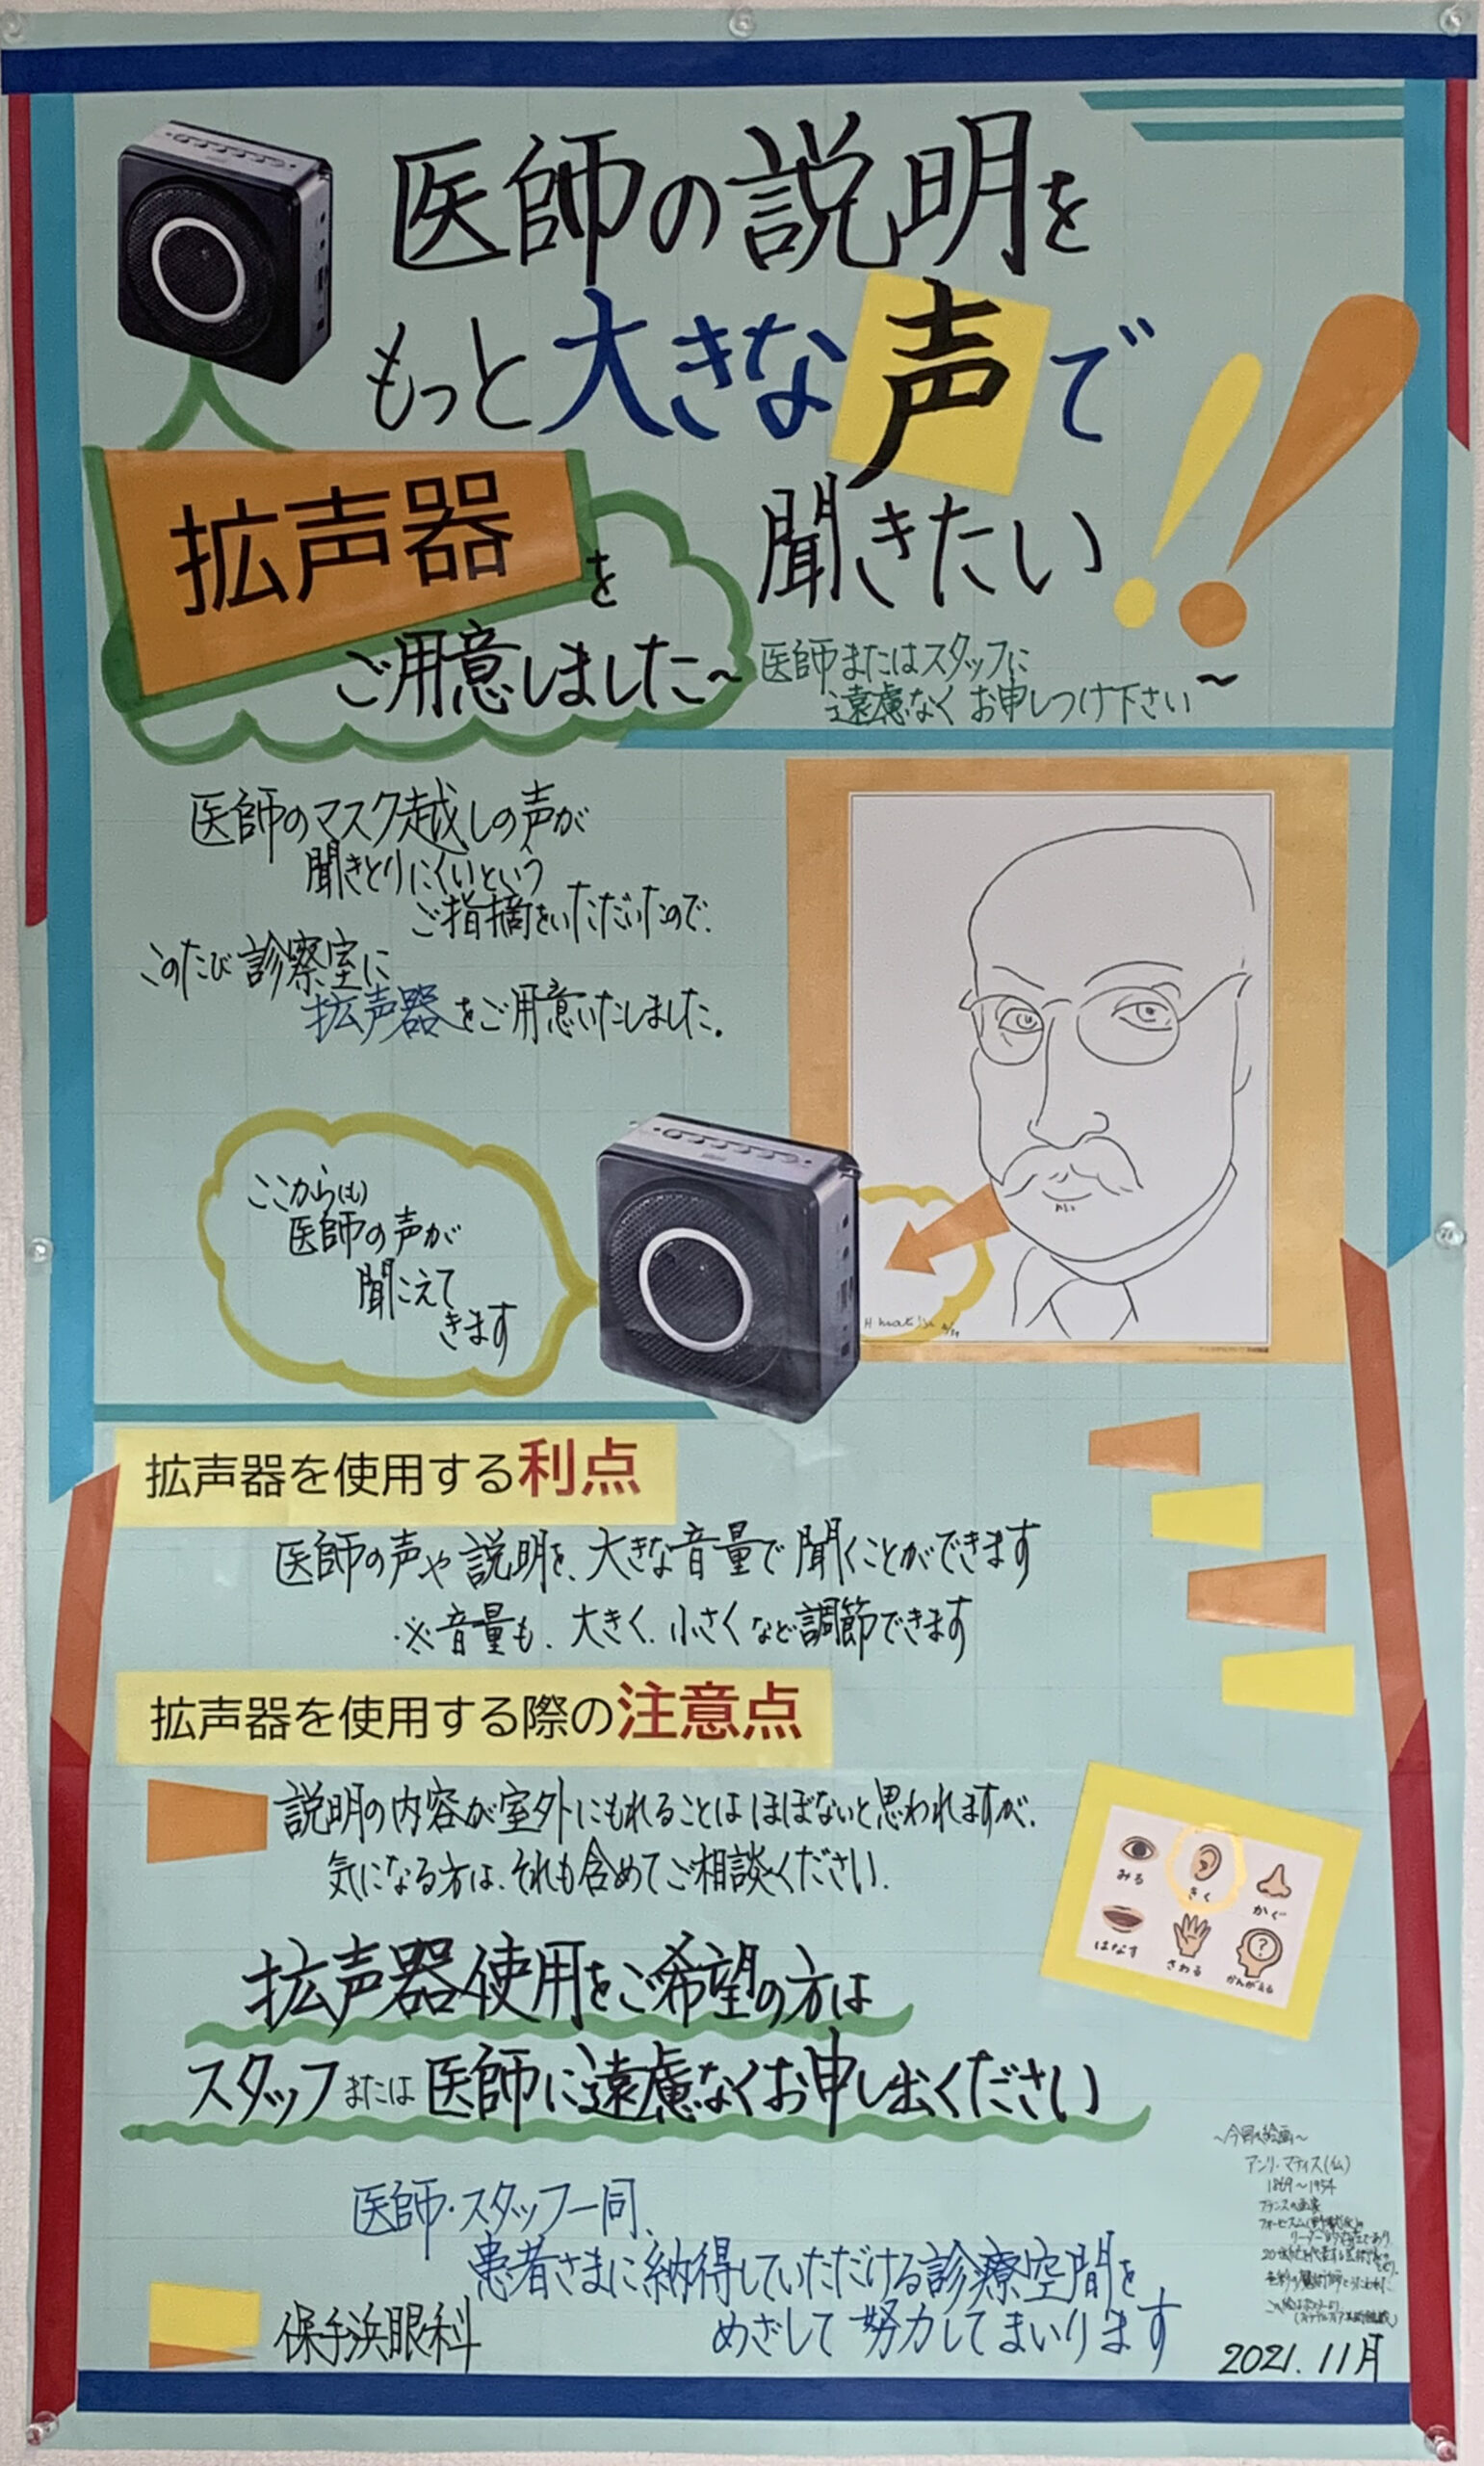 医師の説明を
もっと大きな声で
聞きたい!!
拡声器を
ご用意しました~
医師またはスタッフに
遠慮なくお申しつけ下さい~
医師のマスク越しの声が
聞きとりにくいという
ご指摘をいただいたので、
このたび診察室に
拡声器をご用意いたしました。
ここから(も)
医師の声が
聞こえて
きます
H Matisse
拡声器を使用する利点
医師の声や説明を、大きな音量で聞くことができます
※音量も、大きく、小さくなど調節できます
拡声器を使用する際の注意点
説明の内容が室外にもれることはほぼないと思われますが、
気になる方は、それも含めてご相談ください.
みる きく かぐ
はなす さわる かんがえる
拡声器使用をご希望の方は
スタッフまたは医師に遠慮なくお申し出ください
医師・スタッフ一同、
患者さまに納得していただける診療空間を
めざして努力してまいります
保手浜眼科
~今月の絵画~
アンリ・マティス(仏)
1869~1954
フランスの画家
2021.11月